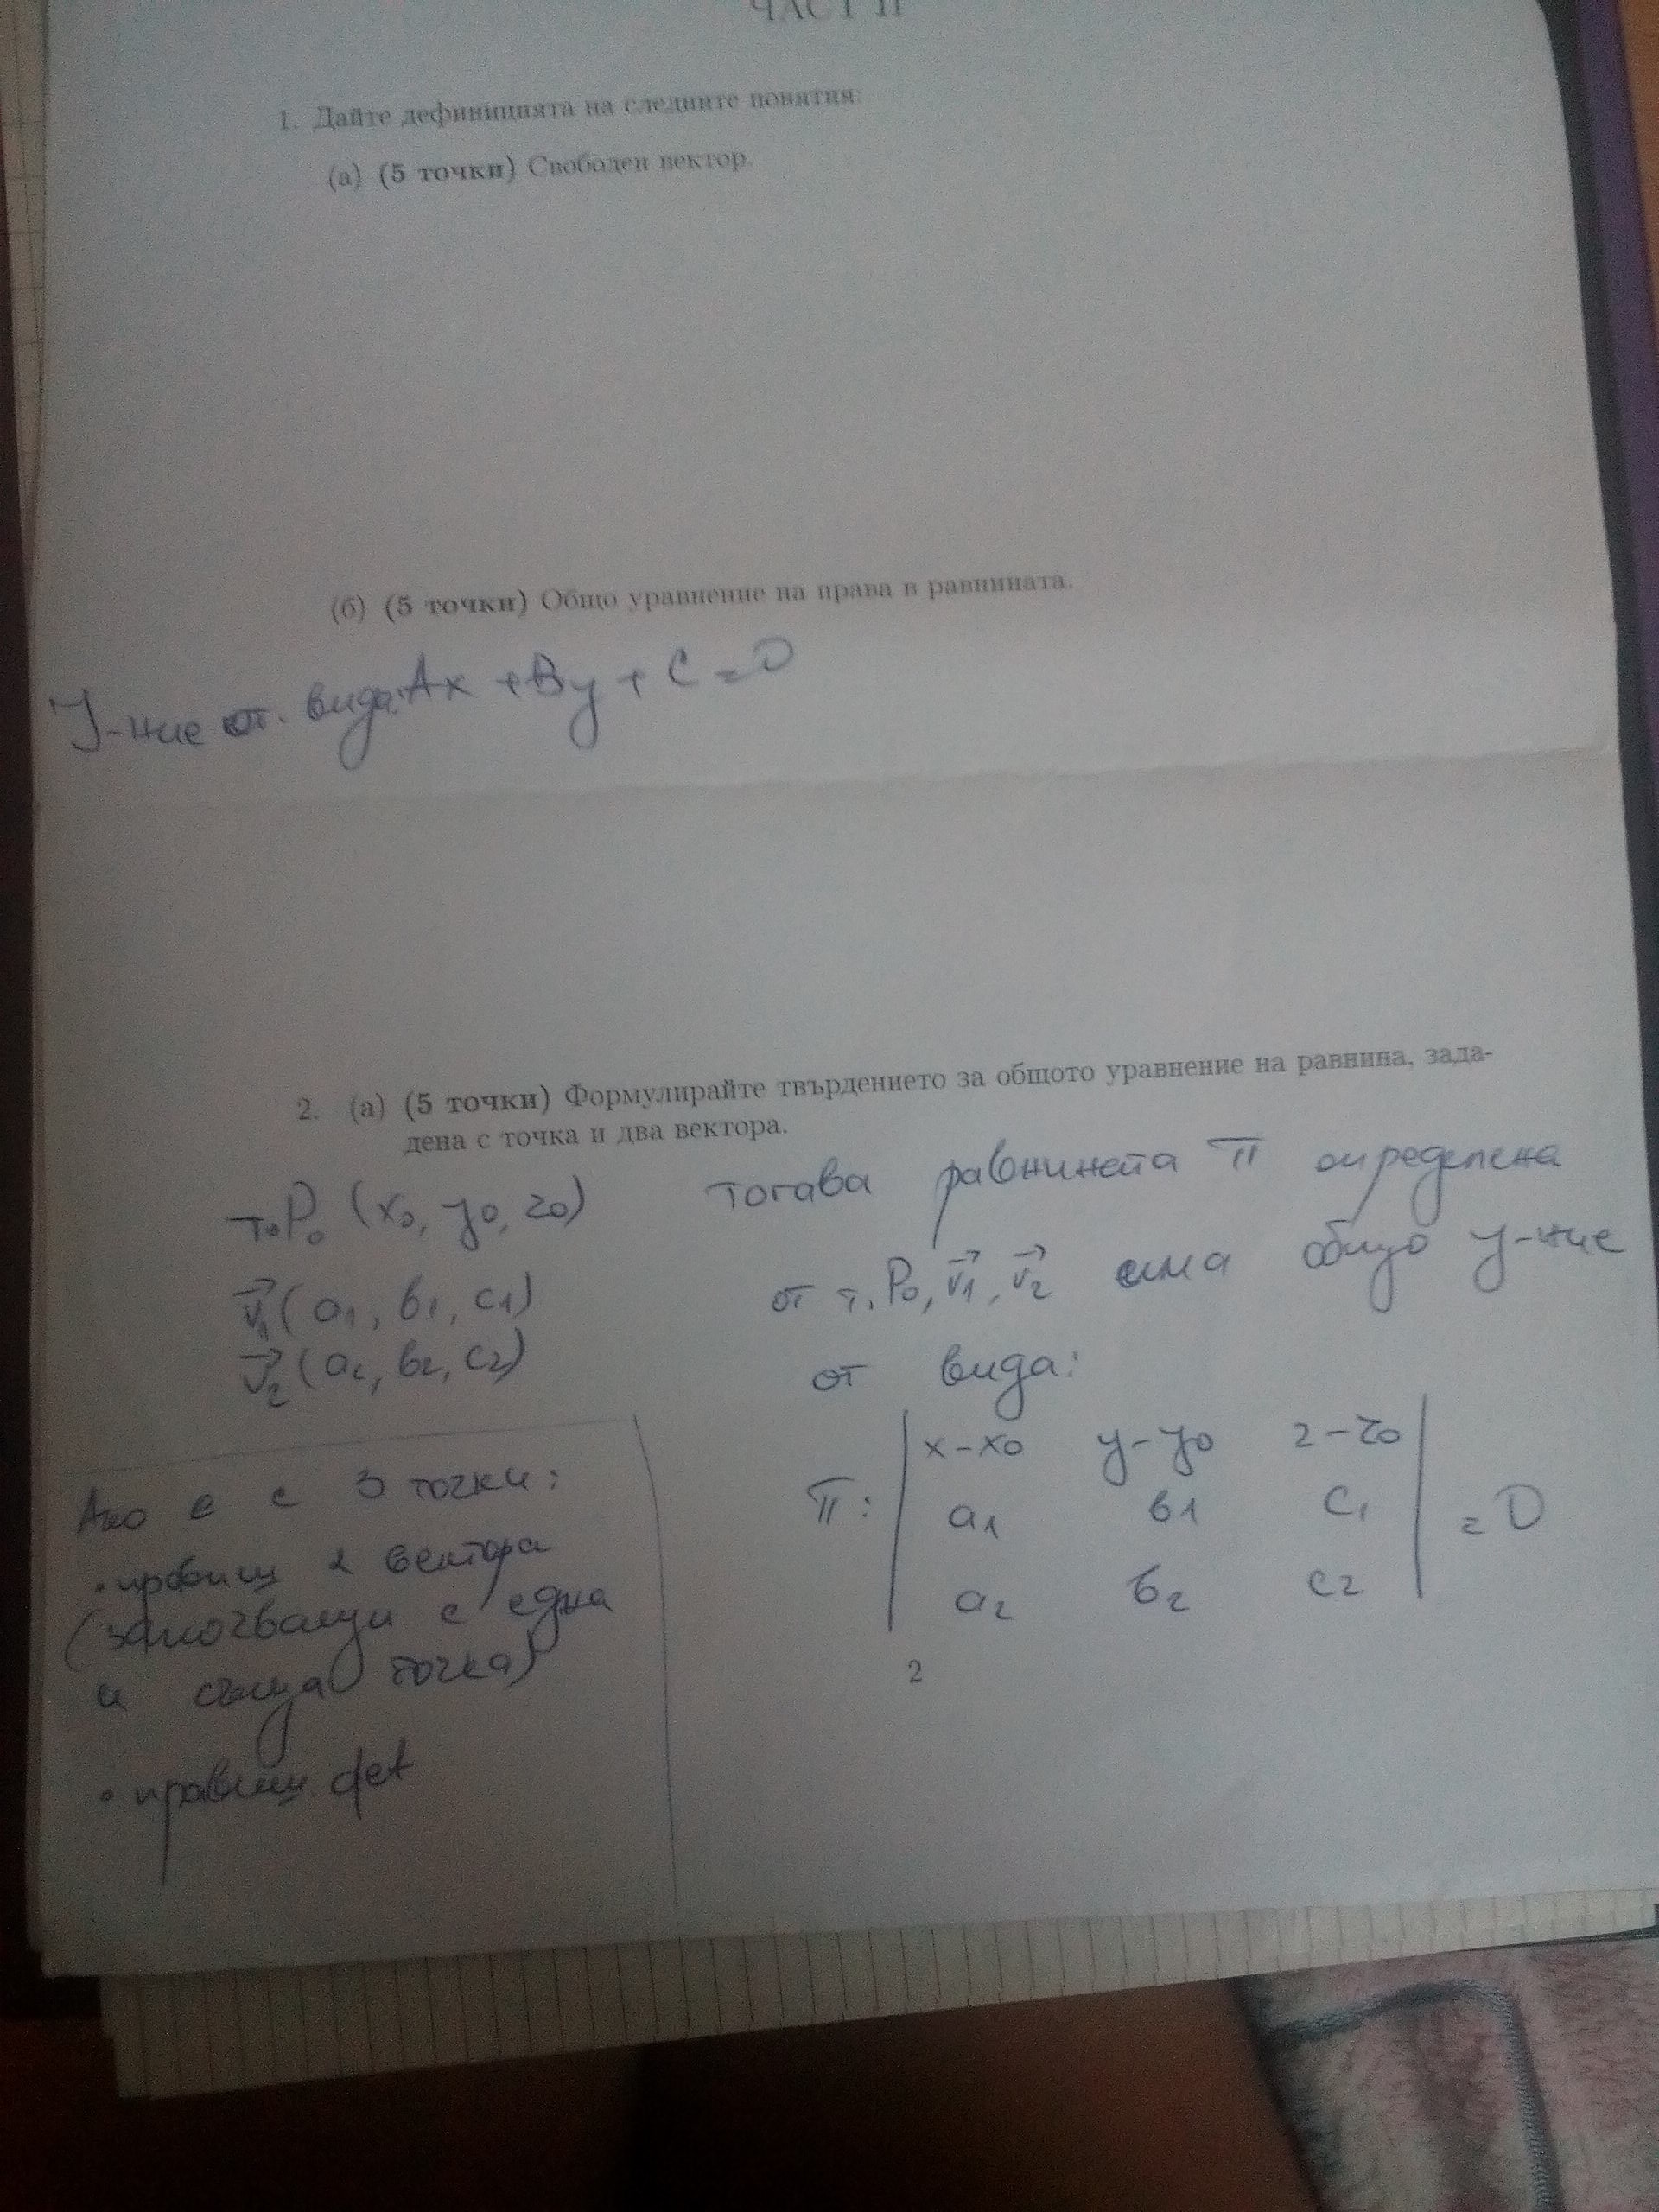 ЧАСТ II
1. Дайте дефиницията на следните понятия:
(а) (5 точки) Свободен вектор.
(б) (5 точки) Общо уравнение на права в равнината.
У-ние от вида: Ax + By + C = 0
2. (а) (5 точки) Формулирайте твърдението за общото уравнение на равнина, зада-
дена с точка и два вектора.
P₀ (x₀, y₀, z₀)
v₁ (a₁, b₁, c₁)
v₂ (a₂, b₂, c₂)
тогава равнината π определена
от т. P₀, v₁, v₂ има общо у-ние
от вида:
π: | x-x₀ y-y₀ z-z₀ |
a₁ b₁ c₁ = 0
a₂ b₂ c₂
Ако е с 3 точки:
• правиш 2 вектора
(започващи с една
и съща точка)
• правиш det
2